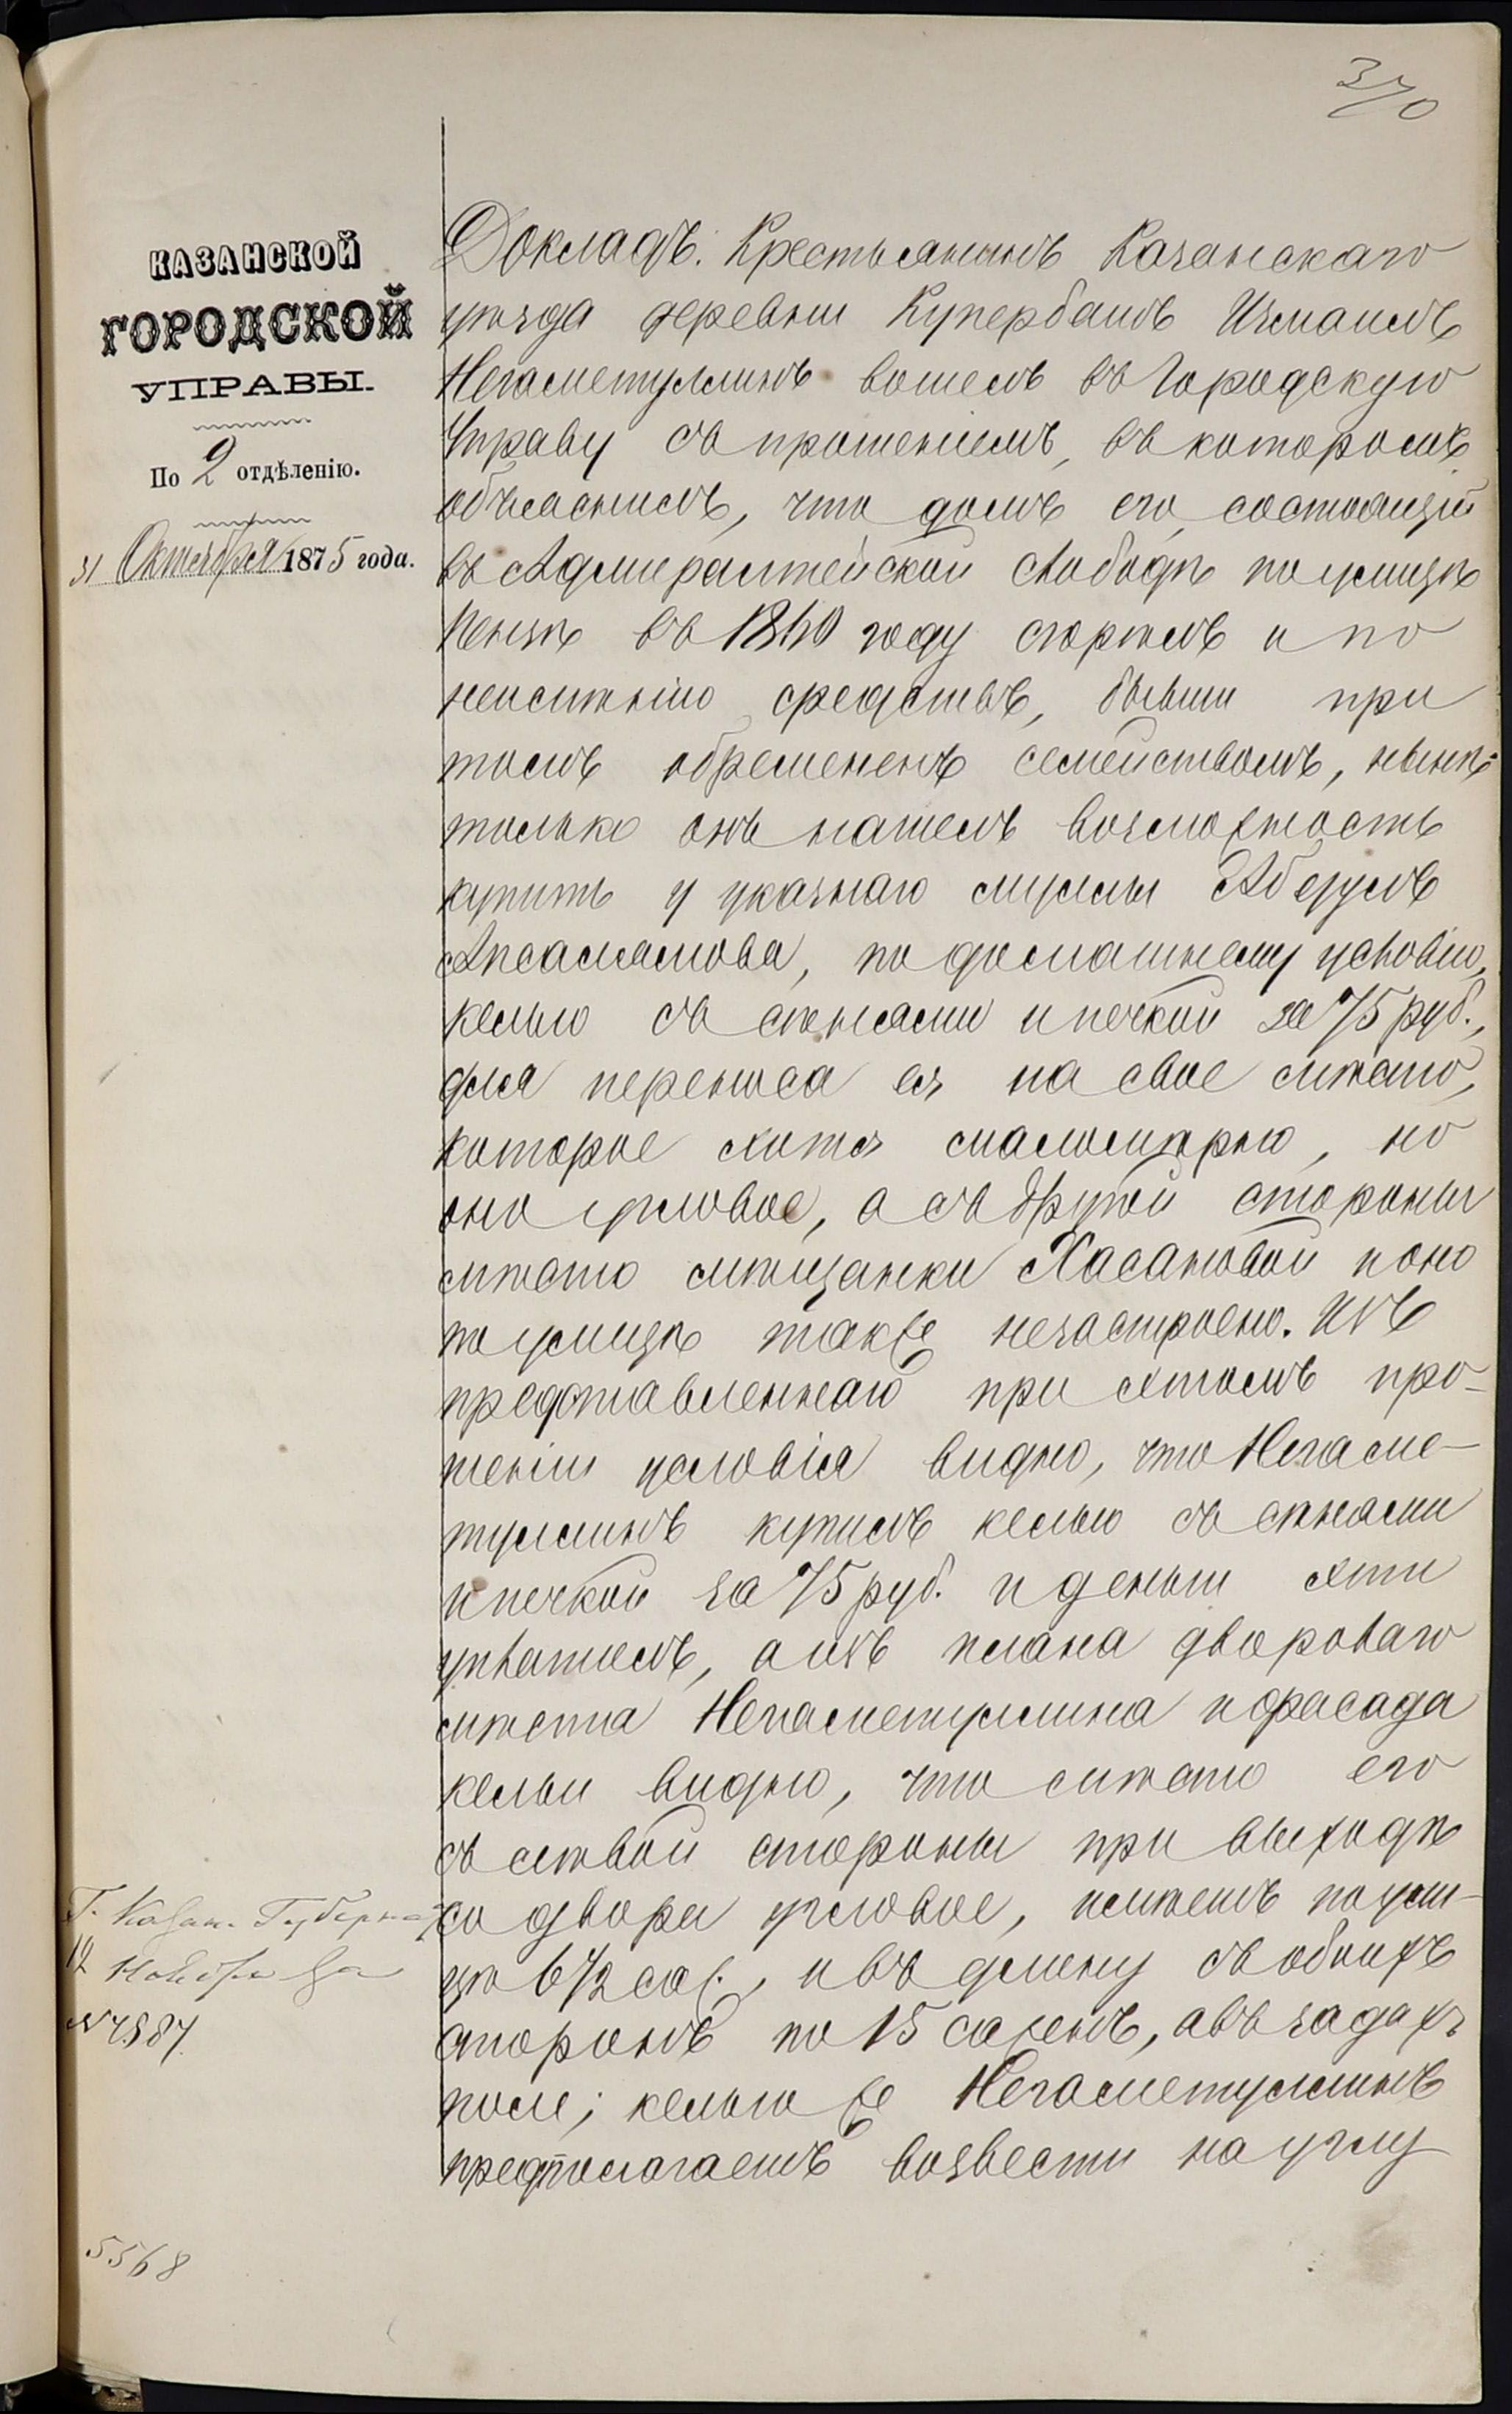 370
КАЗАНСКОЙ
ГОРОДСКОЙ
УПРАВЫ.
По 2 отдѣленію.
31 Октября 1875 года.
Докладъ. Крестьянинъ Казанскаго
уѣзда деревни Купербашъ Измаилъ
Негаметуллинъ вошелъ въ Городскую
Управу съ прошеніемъ, въ которомъ
объяснилъ, что домъ его, состоящій
въ Адмиралтейской слободѣ по улицѣ
въ году сгорѣлъ и по
неимѣнію средствъ, бывши при
томъ обремененъ семействомъ, нынѣ
только онъ нашелъ возможность
купить у указнаго муллы Абдулъ
по домашнему условію,
келью съ сѣнями и печкой за 75 руб.,
для переноса ея на свое мѣсто,
которое хотя маломѣрно, но
оно угловое, а съ другой стороны
мѣсто мѣщанки Хасановой и оно
по улицѣ также незастроено. Изъ
представленнаго при этомъ про-
шеніи условія видно, что Негаме-
туллинъ купилъ келью съ сѣнями
и печкой за 75 руб. и деньги эти
уплатилъ, а изъ плана двороваго
мѣста Негаметуллина и фасада
кельи видно, что мѣсто его
съ лѣвой стороны при выходѣ
со двора угловое, имѣетъ по ули-
цѣ 6 1/2 саж., и въ длину съ обоихъ
сторонъ по 15 саженъ, а въ задахъ
поле; келью же Негаметуллинъ
предполагаетъ возвести на углу
Г. Казан. Губерна
12 Ноября За
№ 4587.
5568